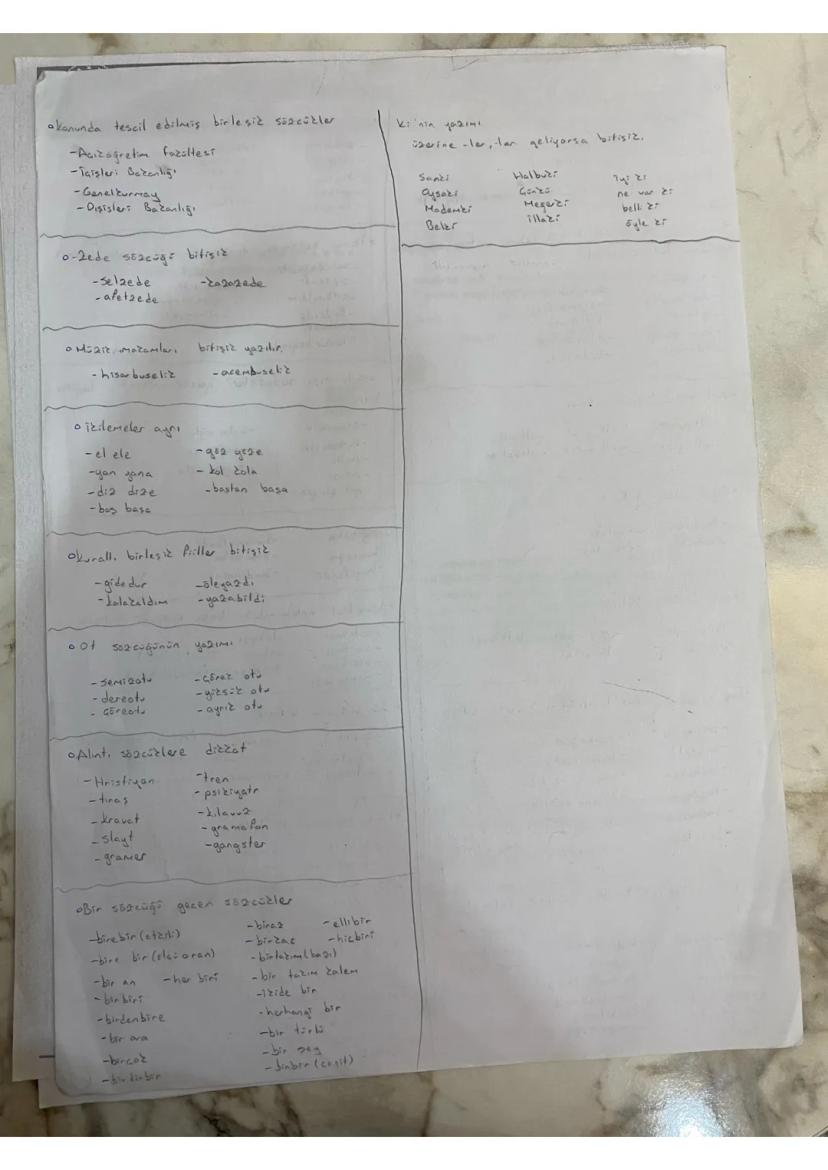 Kanunda tescil edilmiş birleşik sözcükler
-Açıköğretim fakültesi
-İçişleri Bakanlığı
-Genelkurmay
-Dışişleri Bakanlığı
-Zede sözcüğü bitişik
-selzede -kazazede
-afetzede
Müzik makamları bitişik yazılır.
-hisarbuselik -acembuselik
İkilemeler ayrı
-el ele -göz göze
-yan yana -kol kola
-diz dize -baştan başa
-baş başa
Kurallı birleşik fiiller bitişik
-gidedur -öleyazdı
-kalakaldım -yazabildi
Ot sözcüğünün yazımı
-semizotu -çörek otu
-dereotu -yüksük otu
-çöreotu -ayrık otu
Alıntı sözcüklere dikkat
-Hristiyan -tren
-tıraş -psikiyatr
-kravat -kılavuz
-slayt -gramofon
-gramer -gangster
Bir sözcüğü geçen sözcükler
-birebir (etkili) -biraz -ellibir
-bire bir (ölçü oran) -birkaç -hiçbiri
-bir an -her biri -birtakım (bazı)
-birbiri -bir takım kalem
-birdenbire -ikide bir
-bir ara -herhangi bir
-birçok -bir türlü
-bir şey
-binbir (çeşit)
Ki'nin yazımı
üzerine -ler, -lar geliyorsa bitişik.
Sanki Halbuki iyi ki
Oysaki Çünkü ne var ki
Mademki Meğerki belli ki
Belki İllaki öyle ki